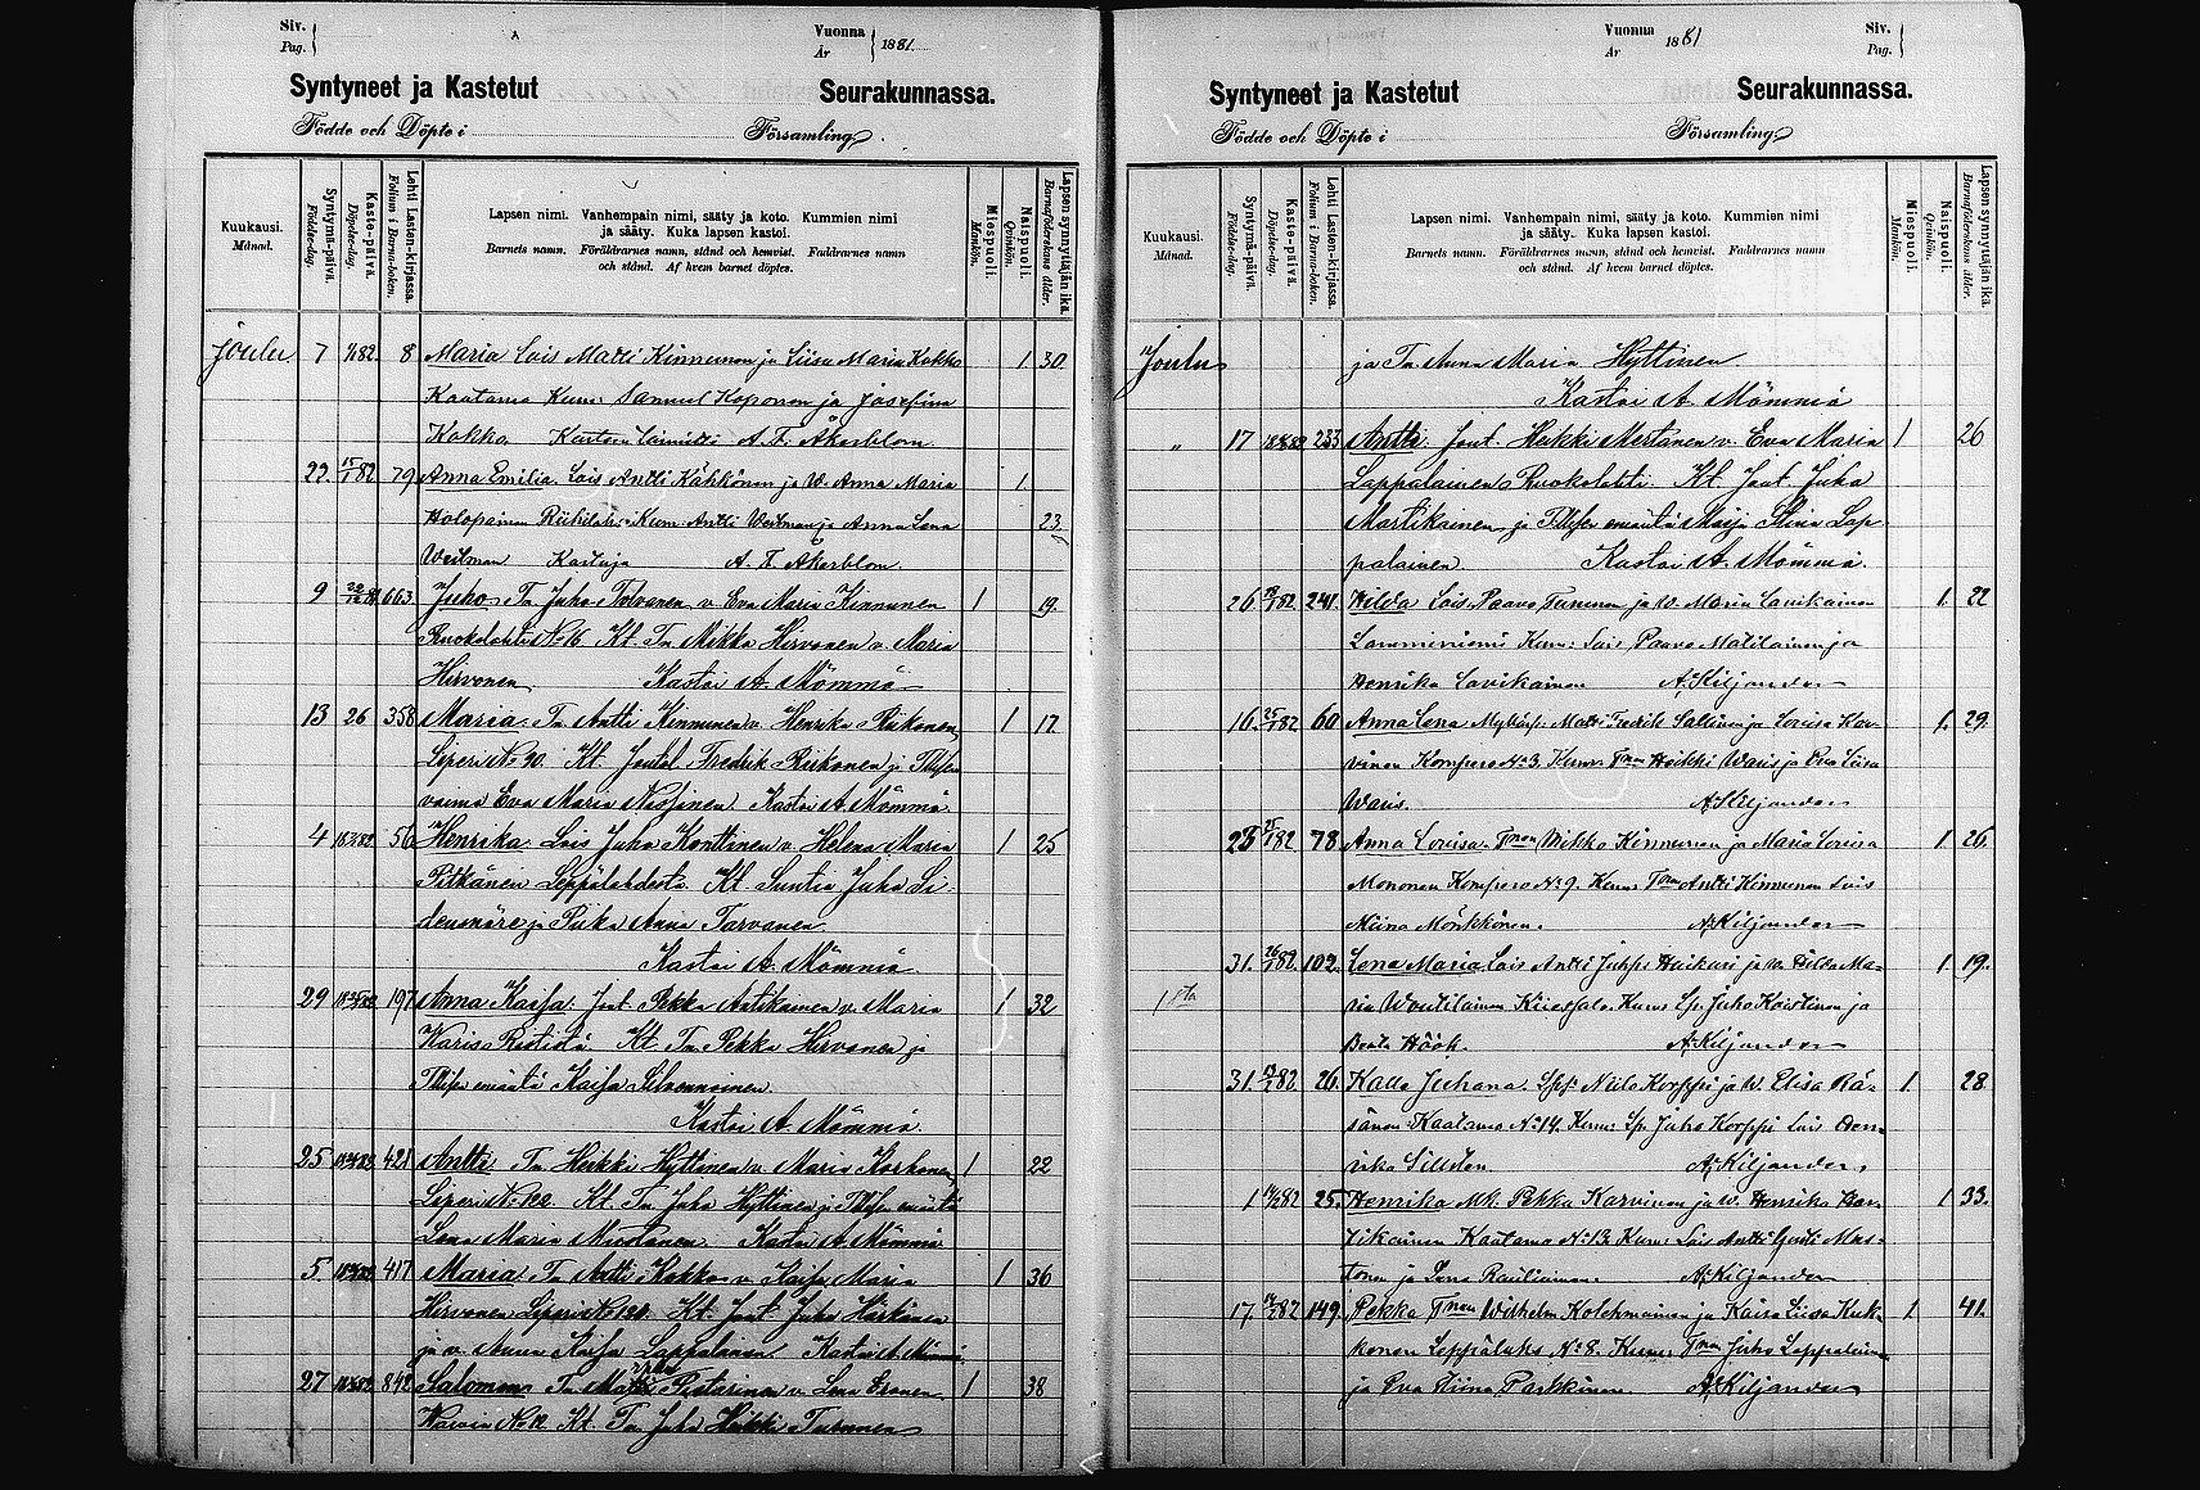 Siv.
Pag.
Vuonna
År
1881.
Syntyneet ja Kastetut Seurakunnassa.
Födde och Döpte i Församling.
Kuukausi.
Månad.
Syntymä-päivä.
Födelse-dag.
Kaste-päivä.
Döpelse-dag.
Lehti Lasten-kirjassa.
Folium i Barna-boken.
Lapsen nimi. Vanhempain nimi, sääty ja koto. Kummien nimi
ja sääty. Kuka lapsen kastoi.
Barnets namn. Föräldrarnes namn, stånd och hemvist. Faddrarnes namn
och stånd. Af hvem barnet döptes.
Miespuoli.
Mankön.
Naispuoli.
Qvinkön.
Lapsen synnyttäjän ikä.
Barnaföderskans ålder.
Joulu 7 1/1 82 8 Maria Lois Matti Kinnunen ja Liisa Maria Kokko 1. 30.
Kaatamo Kum: Samuel Koponen ja Josefina
Kokko. A. F. Åkerblom.
22. 15/1 82 79 Anna Emilia. Lois Antti Kähkönen ja W. Anna Maria 1.
Holopainen Kum: Antti Westman ja Anna Lena 23.
Westman Kastaja A. F. Åkerblom.
9 22/12 81 663 Juho Tn Juho Tolvanen v. Eva Maria Kinnunen 1 19.
Ruokolahti No 16 Kt. Tn Mikko Hirvonen v. Maria
Hirvonen Kastoi A. Mömmö
13 26 358 Maria. Tn Antti Kinnunen v. Henrika Riikonen 1 17
Liperi No 90. Kt. Fredrik Riikonen ja
vaimo Eva Maria Kastoi A. Mömmö.
4 56 Henrika. Lois Juho Konttinen v. Helena Maria 1 25
Pitkänen Leppälahdesta. Kt. Suntio Juho
ja Piika Anna Tarvanen
Kastoi A. Mömmö.
29 197 Anna Kaisa. Pekka Antikainen v. Maria 1 32
Karis Kt. Tn Pekka Hirvonen ja
emäntä Kaisa
Kastoi A. Mömmö.
25 421 Antti Tn Heikki Hyttinen v. Maria Korhonen 1 22
Liperi Kt. Tn Juho Hyttinen ja emäntä
Lena Maria Mustonen. Kastoi A. Mömmö
5. 417 Maria. Tn Antti Kokko v. Kaisa Maria 1 36
Hirvonen Liperi Kt. Juho
ja v. Anna Kaisa Lappalainen Kastoi A. Mömmö
27 842 Salomon Tn Pistarinen v. Lena Eronen 1 38
No 12. Kt. Tn Juho Heikki Turunen
Vuonna
År
1881
Siv.
Pag.
Syntyneet ja Kastetut Seurakunnassa.
Födde och Döpte i Församling.
Kuukausi.
Månad.
Syntymä-päivä.
Födelse-dag.
Kaste-päivä.
Döpelse-dag.
Lehti Lasten-kirjassa.
Folium i Barna-boken.
Lapsen nimi. Vanhempain nimi, sääty ja koto. Kummien nimi
ja sääty. Kuka lapsen kastoi.
Barnets namn. Föräldrarnes namn, stånd och hemvist. Faddrarnes namn
och stånd. Af hvem barnet döptes.
Miespuoli.
Mankön.
Naispuoli.
Qvinkön.
Lapsen synnyttäjän ikä.
Barnaföderskans ålder.
Joulu ja Tn. Anna Maria Hyttinen.
Kastoi A. Mömmö
" 17 233 Antti. Heikki Mertanen v. Eva Maria 1 26
Lappalainen Ruokolahti. Kt. Juho
Martikainen ja emäntä Maija Stina Lap
palainen Kastoi A. Mömmö.
26 241. Hilda Lois. Paavo Turunen ja W. Maria Lavikainen 1. 22
Lamminniemi Kum: Lois Paavo Matilainen ja
Henrika Lavikainen A. Kiljander
16. 25/1 82 60 Anna Lena Matti Fredrik Sallinen ja Lovisa Kar- 1. 29.
vinen Kompero No 3. Kum: Tnen Heikki Waris ja Eva Liisa
Waris. A. Kiljander
25 82 78 Anna Lovisa. Tnen Mikko Kinnunen ja Maria Lovisa 1. 26.
Mononen Kompero No 9. Kum: Tnen Antti Kinnunen Lois
Miina Mönkkönen. A. Kiljander
31. 26/1 82. 102. Lena Maria. Lois Antti Juhp. Haikuri ja W. Hilda Ma= 1. 19.
1 sta ria Woutilainen Kiiessalo. Kum: Lp. Juho Koistinen ja
Beata Höök. A. Kiljander
31. 82 26. Kalle Juhana. Niilo Korppi ja W. Elisa Rä= 1. 28
sänen Kaatamo No 14. Kum: Lp. Juho Korppi Lois Hen=
rika Sillsten A. Kiljander.
1 82 25. Henrika Mk. Pekka Karvinen ja W. Henrika Kar= 1 33.
Kaatamo No 13 Kum: Lois Antti Mus=
tonen ja Lena Rautiainen A. Kiljander
17. 82 149. Pekka Tnen Wilhelm Kolehmainen ja Kaisa Liisa Kuk= 1. 41.
konen Leppälaks No 8. Kum: Tnen Juho Lappalainen
ja Eva Stiina Parkkinen. A. Kiljander